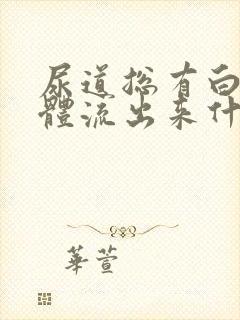 尿道總有白
體流出来什
華萱